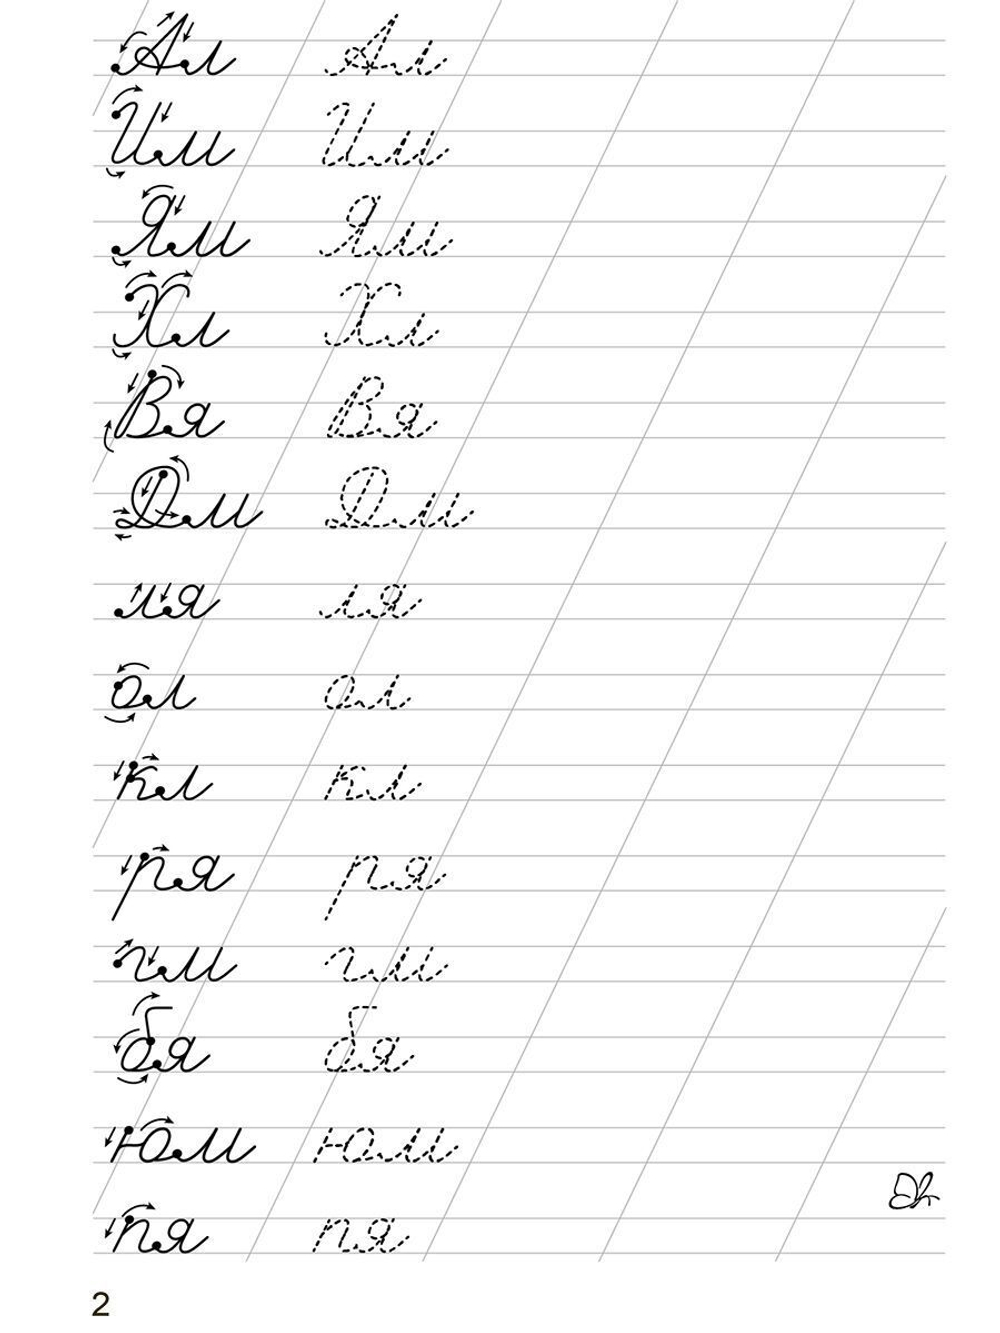 Ал Ал
Им Им
Ям Ям
Хл Хл
Вя Вя
Дм Дм
ля ля
ол ол
кл кл
ря ря
гм гм
бя бя
юм юм
пя пя
2